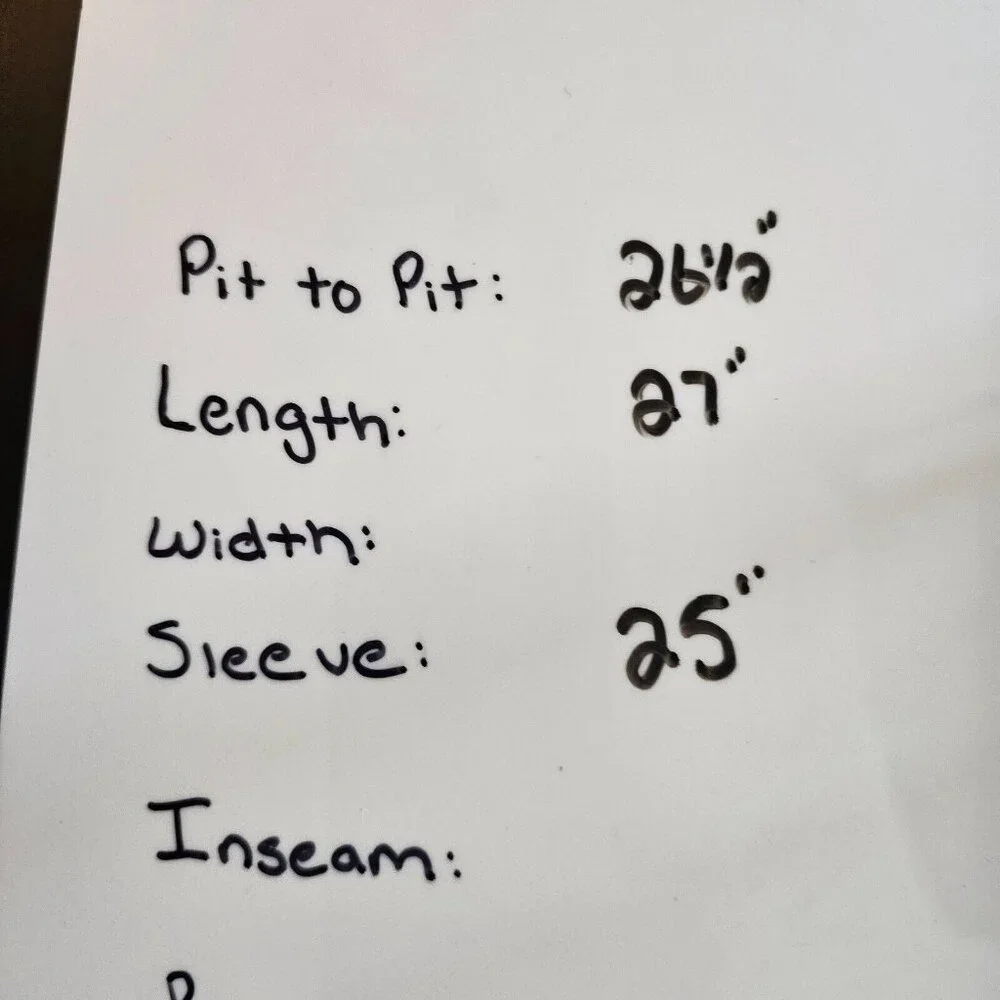 Pit to Pit: 26 1/2"
Length: 27"
Width:
Sleeve: 25"
Inseam: